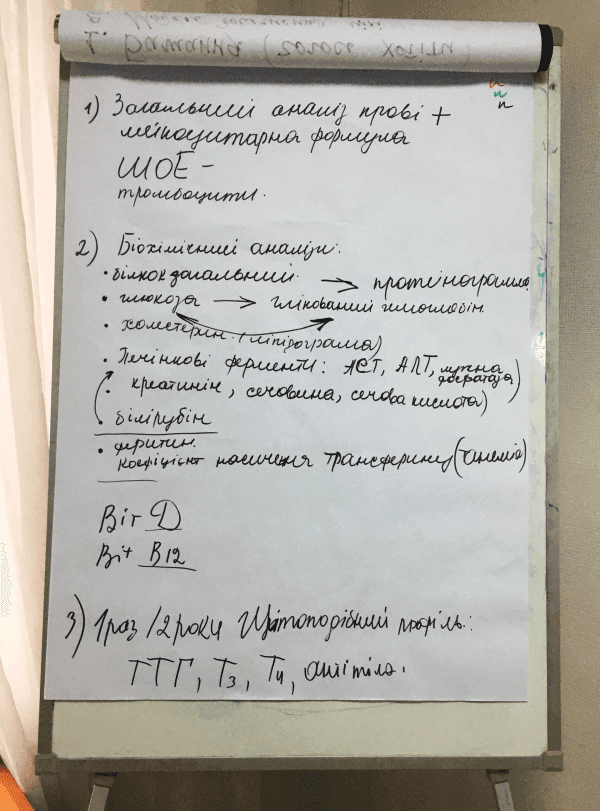 2. Бажання (чогось хотіти)
n
n
n
1) Загальний аналіз крові +
лейкоцитарна формула
ШОЕ –
тромбоцити.
2) Біохімічний аналіз:
• білкок загальний. → протеінограмма
• глюкоза → глікований гемоглобін
• холестерин. (ліпідограма)
• Печінкові ферменти: АСТ, АЛТ, лужна фосфатаза)
• креатинін, сечовина, сечова кислота)
• білірубін
• феритин.
коефіцієнт насичення трансферину (анемія)
Віт D
Віт B12
3) 1 раз / 2 роки Щитоподібний профіль:
ТТГ, Т3, Т4, антитіла.